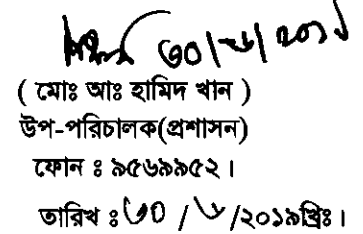 ৩০/৬/২০১৯
( মোঃ আঃ হামিদ খান )
উপ-পরিচালক(প্রশাসন)
ফোন ঃ ৯৫৬৯৯৫২।
তারিখ ঃ ৩০ /৬ /২০১৯খ্রিঃ।